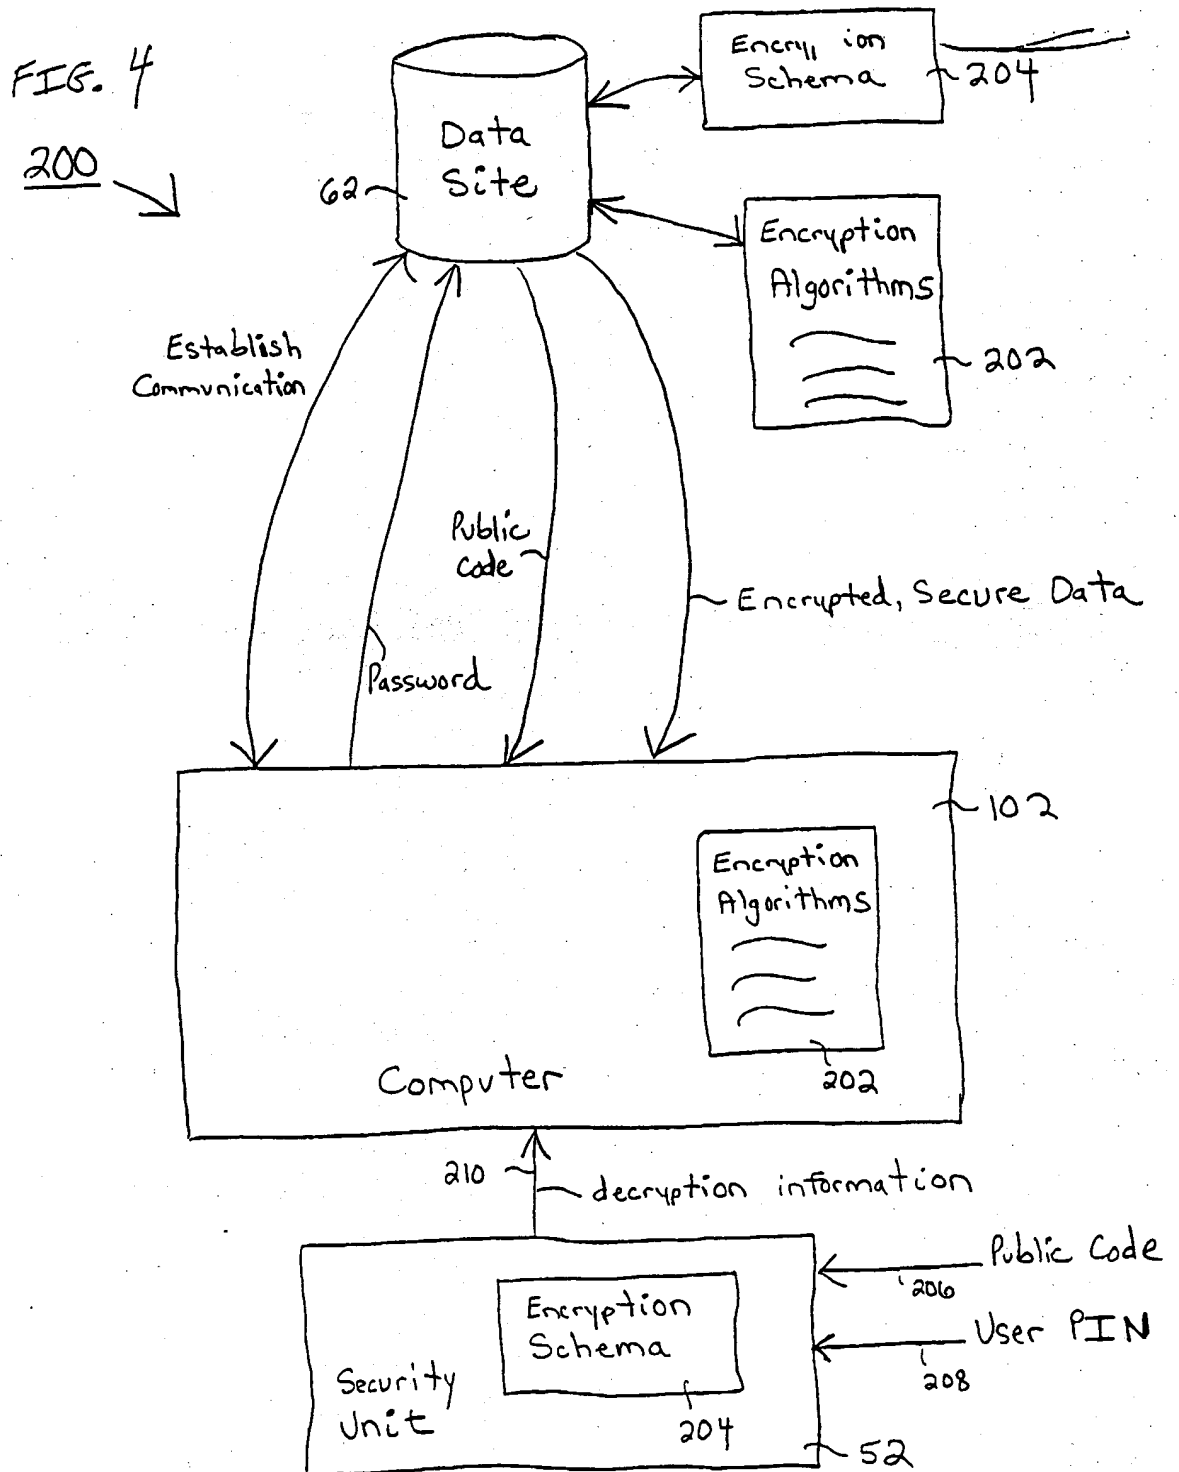 FIG. 4
200
Data
Site
62
Encry ion
Schema
204
Encryption
Algorithms
202
Establish
Communication
Public
Code
Password
Encrypted, Secure Data
102
Encryption
Algorithms
202
Computer
210
decryption information
Public Code
206
User PIN
208
Encryption
Schema
204
Security
Unit
52